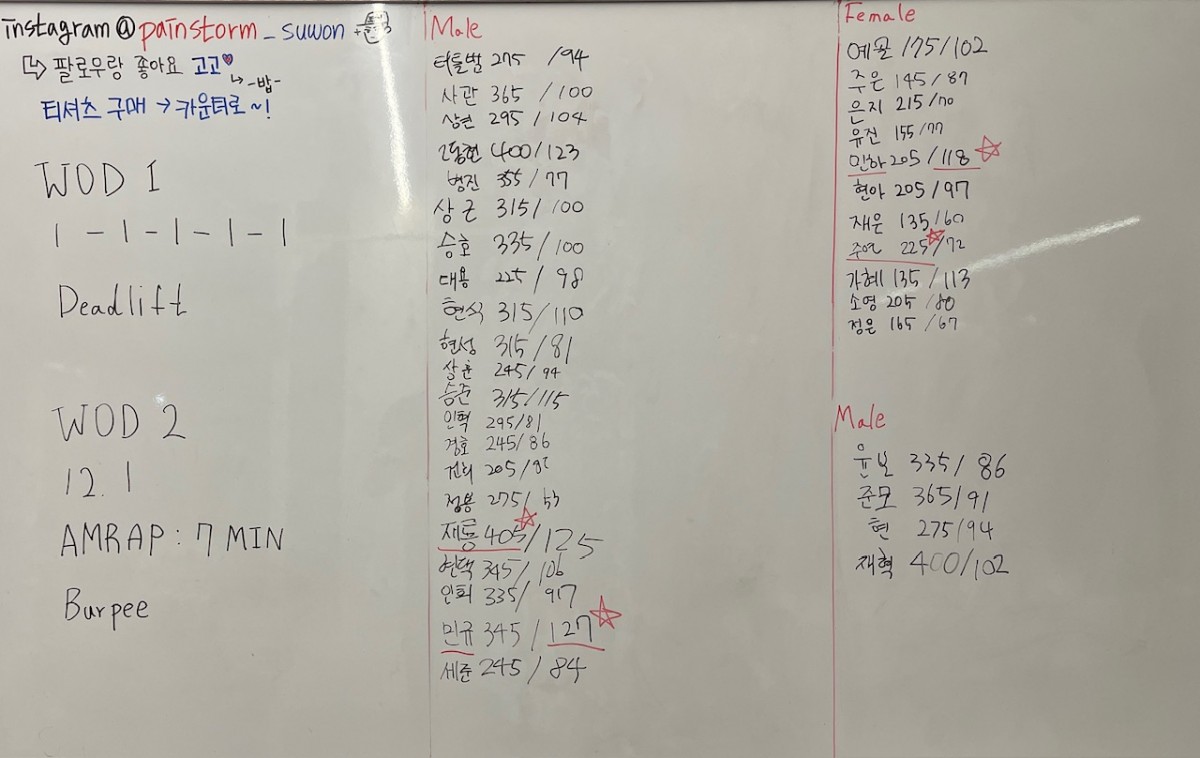 instagram @ painstorm_suwon
↳ 팔로우랑 좋아요 고고♥
↳ -밥-
티셔츠 구매 → 카운터로 ~!
WOD 1
1 - 1 - 1 - 1 - 1
Deadlift
WOD 2
12.1
AMRAP : 7 MIN
Burpee
Male
275 /94
사관 365 /100
상현 295 / 104
400/123
병진 355 / 77
상근 315/ 100
승호 335/ 100
대용 225/ 98
현식 315/110
현성 315/81
상훈 245/ 94
승준 315/115
인혁 295/81
경호 245/86
건희 205/
정봉 275/
재동 405/125
현택 345/ 106
인희 335/ 97
민규 345 / 127
세준 245 / 84
Female
예은 175/102
주은 145/ 87
은지 215/70
유진 155/77
민하 205/118
현아 205/97
재은 135/60
주연 225/72
가혜 135/113
소영 205 /80
정은 165 /67
Male
윤보 335/ 86
준모 365/91
현 275/94
재혁 400/102